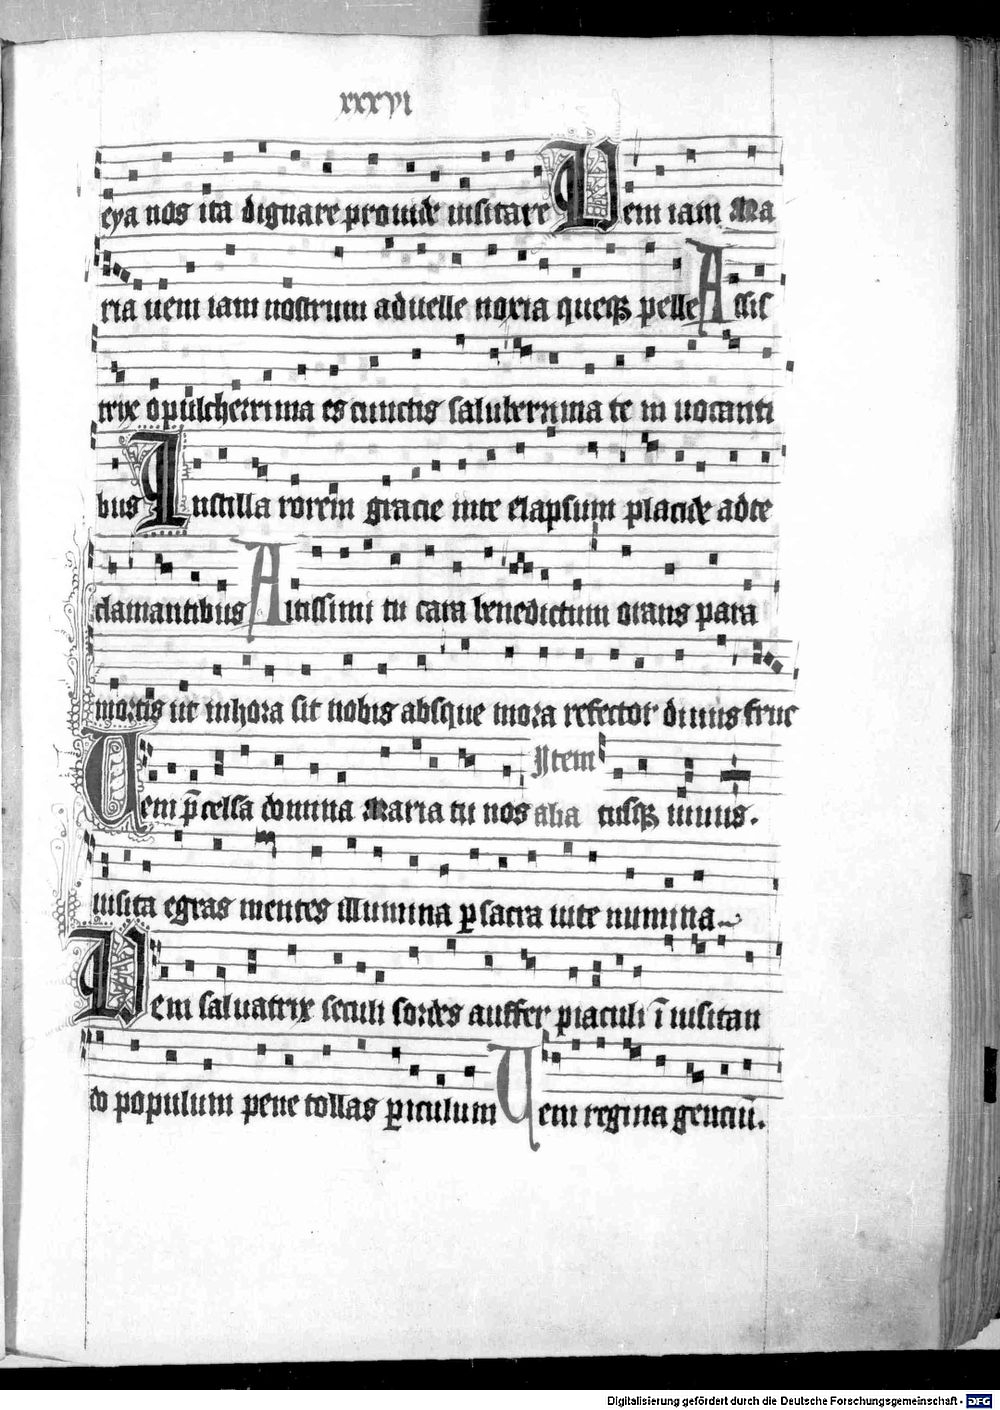 xxxvi
eya nos ita dignare prouide uisitare Uem iam Ma
ria ueni iam nostrum aduelle noxia quesqꝫ pelle Assis
trix o pulcherrima es cunctis saluberrima te in uocanti
bus Instilla rorem gracie iure elapsum placide ad te
clamantibus Altissimi tu cara benedictum orans para
mortis ut in hora sit nobis absque mora refector diuus fruc
Item
Uem p̄celsa domina Maria tu nos alia tusqꝫ uiuus.
uisita egras mentes illumina ꝑ sacra uite numina
Uem saluatrix seculi sordes auffer piaculi ī uisitan
do populum pene tollas ꝑiculum Uem regina genciū.
Digitalisierung gefördert durch die Deutsche Forschungsgemeinschaft - DFG